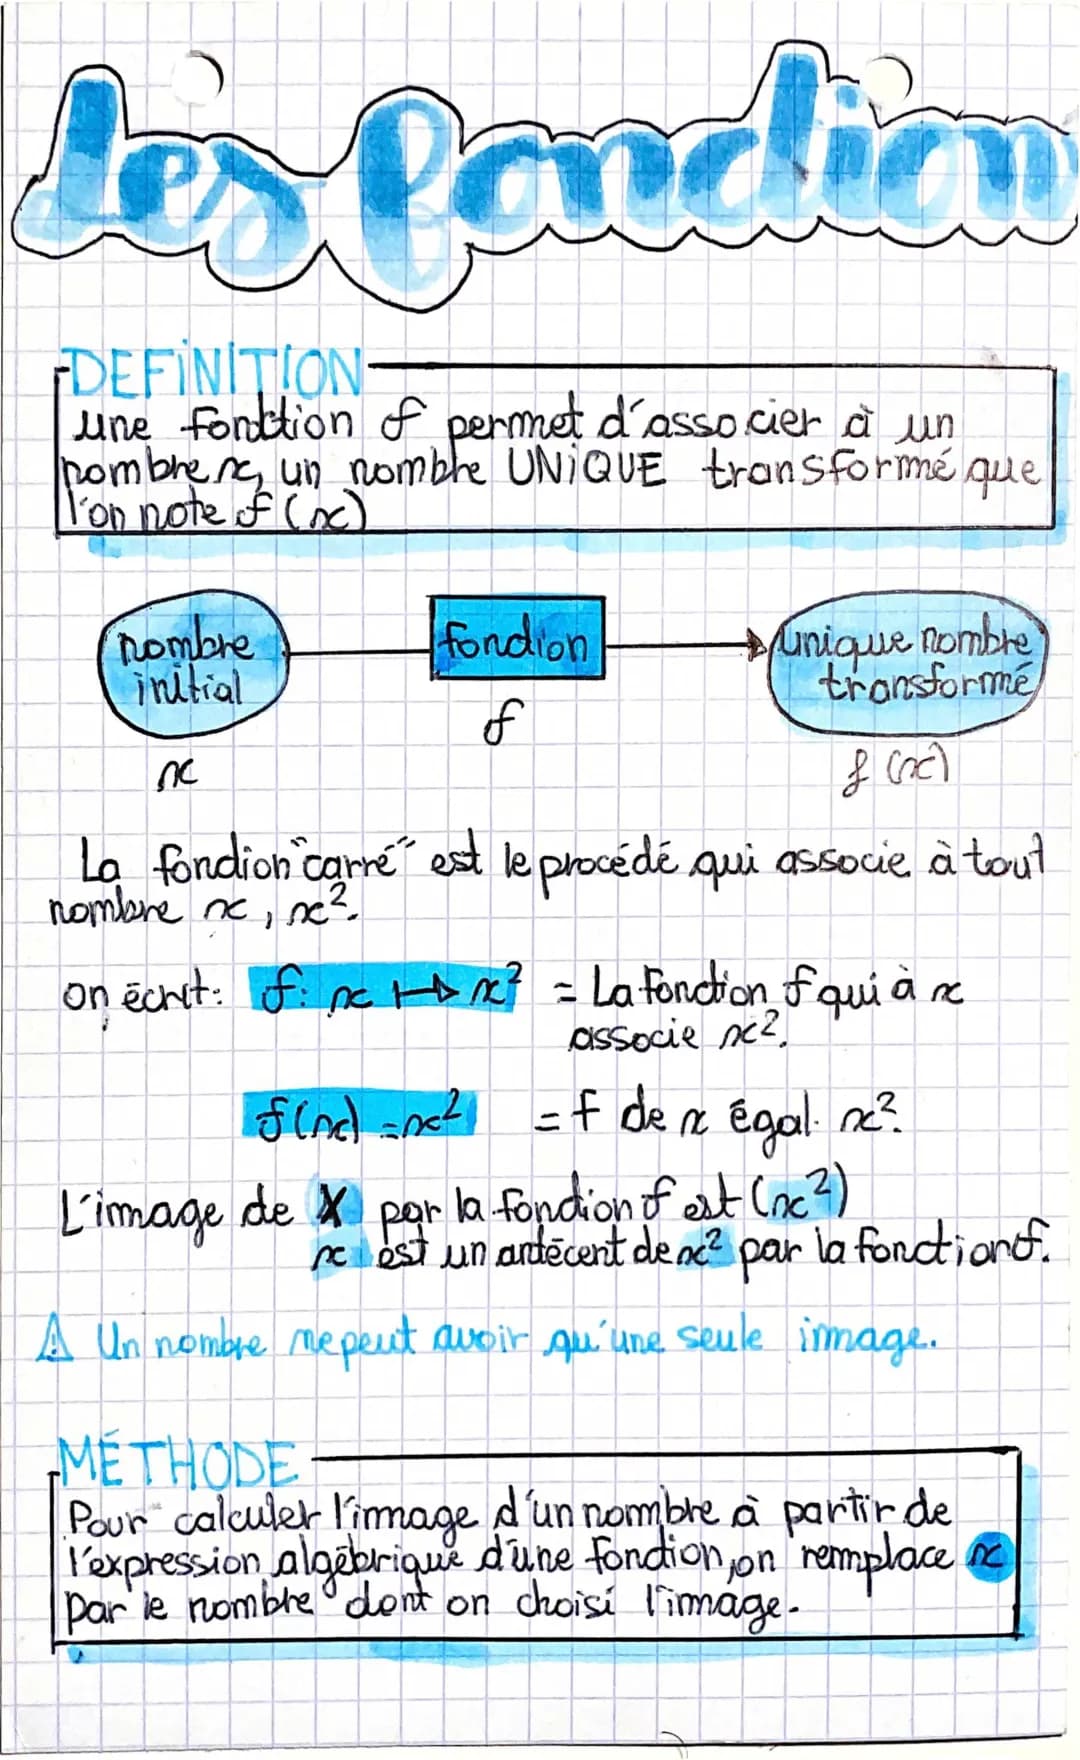 Les fonction
DEFiNiTiON
une fonction f permet d'associer à un
nombre x, un nombre UNiQUE transformé que
l'on note f(x)
nombre
initial
fonction
unique nombre
transformé
f
x
f(x)
La fonction "carré" est le procédé qui associe à tout
nombre x, x².
on écrit: f: x ↦ x² = La fonction f qui à x
associe x².
f(x) = x² = f de x égal x².
L'image de X par la fonction f est (x²)
x est un antécent de x² par la fonction f.
⚠ Un nombre ne peut avoir qu'une seule image.
MÉTHODE
Pour calculer l'image d'un nombre à partir de
l'expression algébrique d'une fonction, on remplace x
par le nombre dont on choisi l'image.